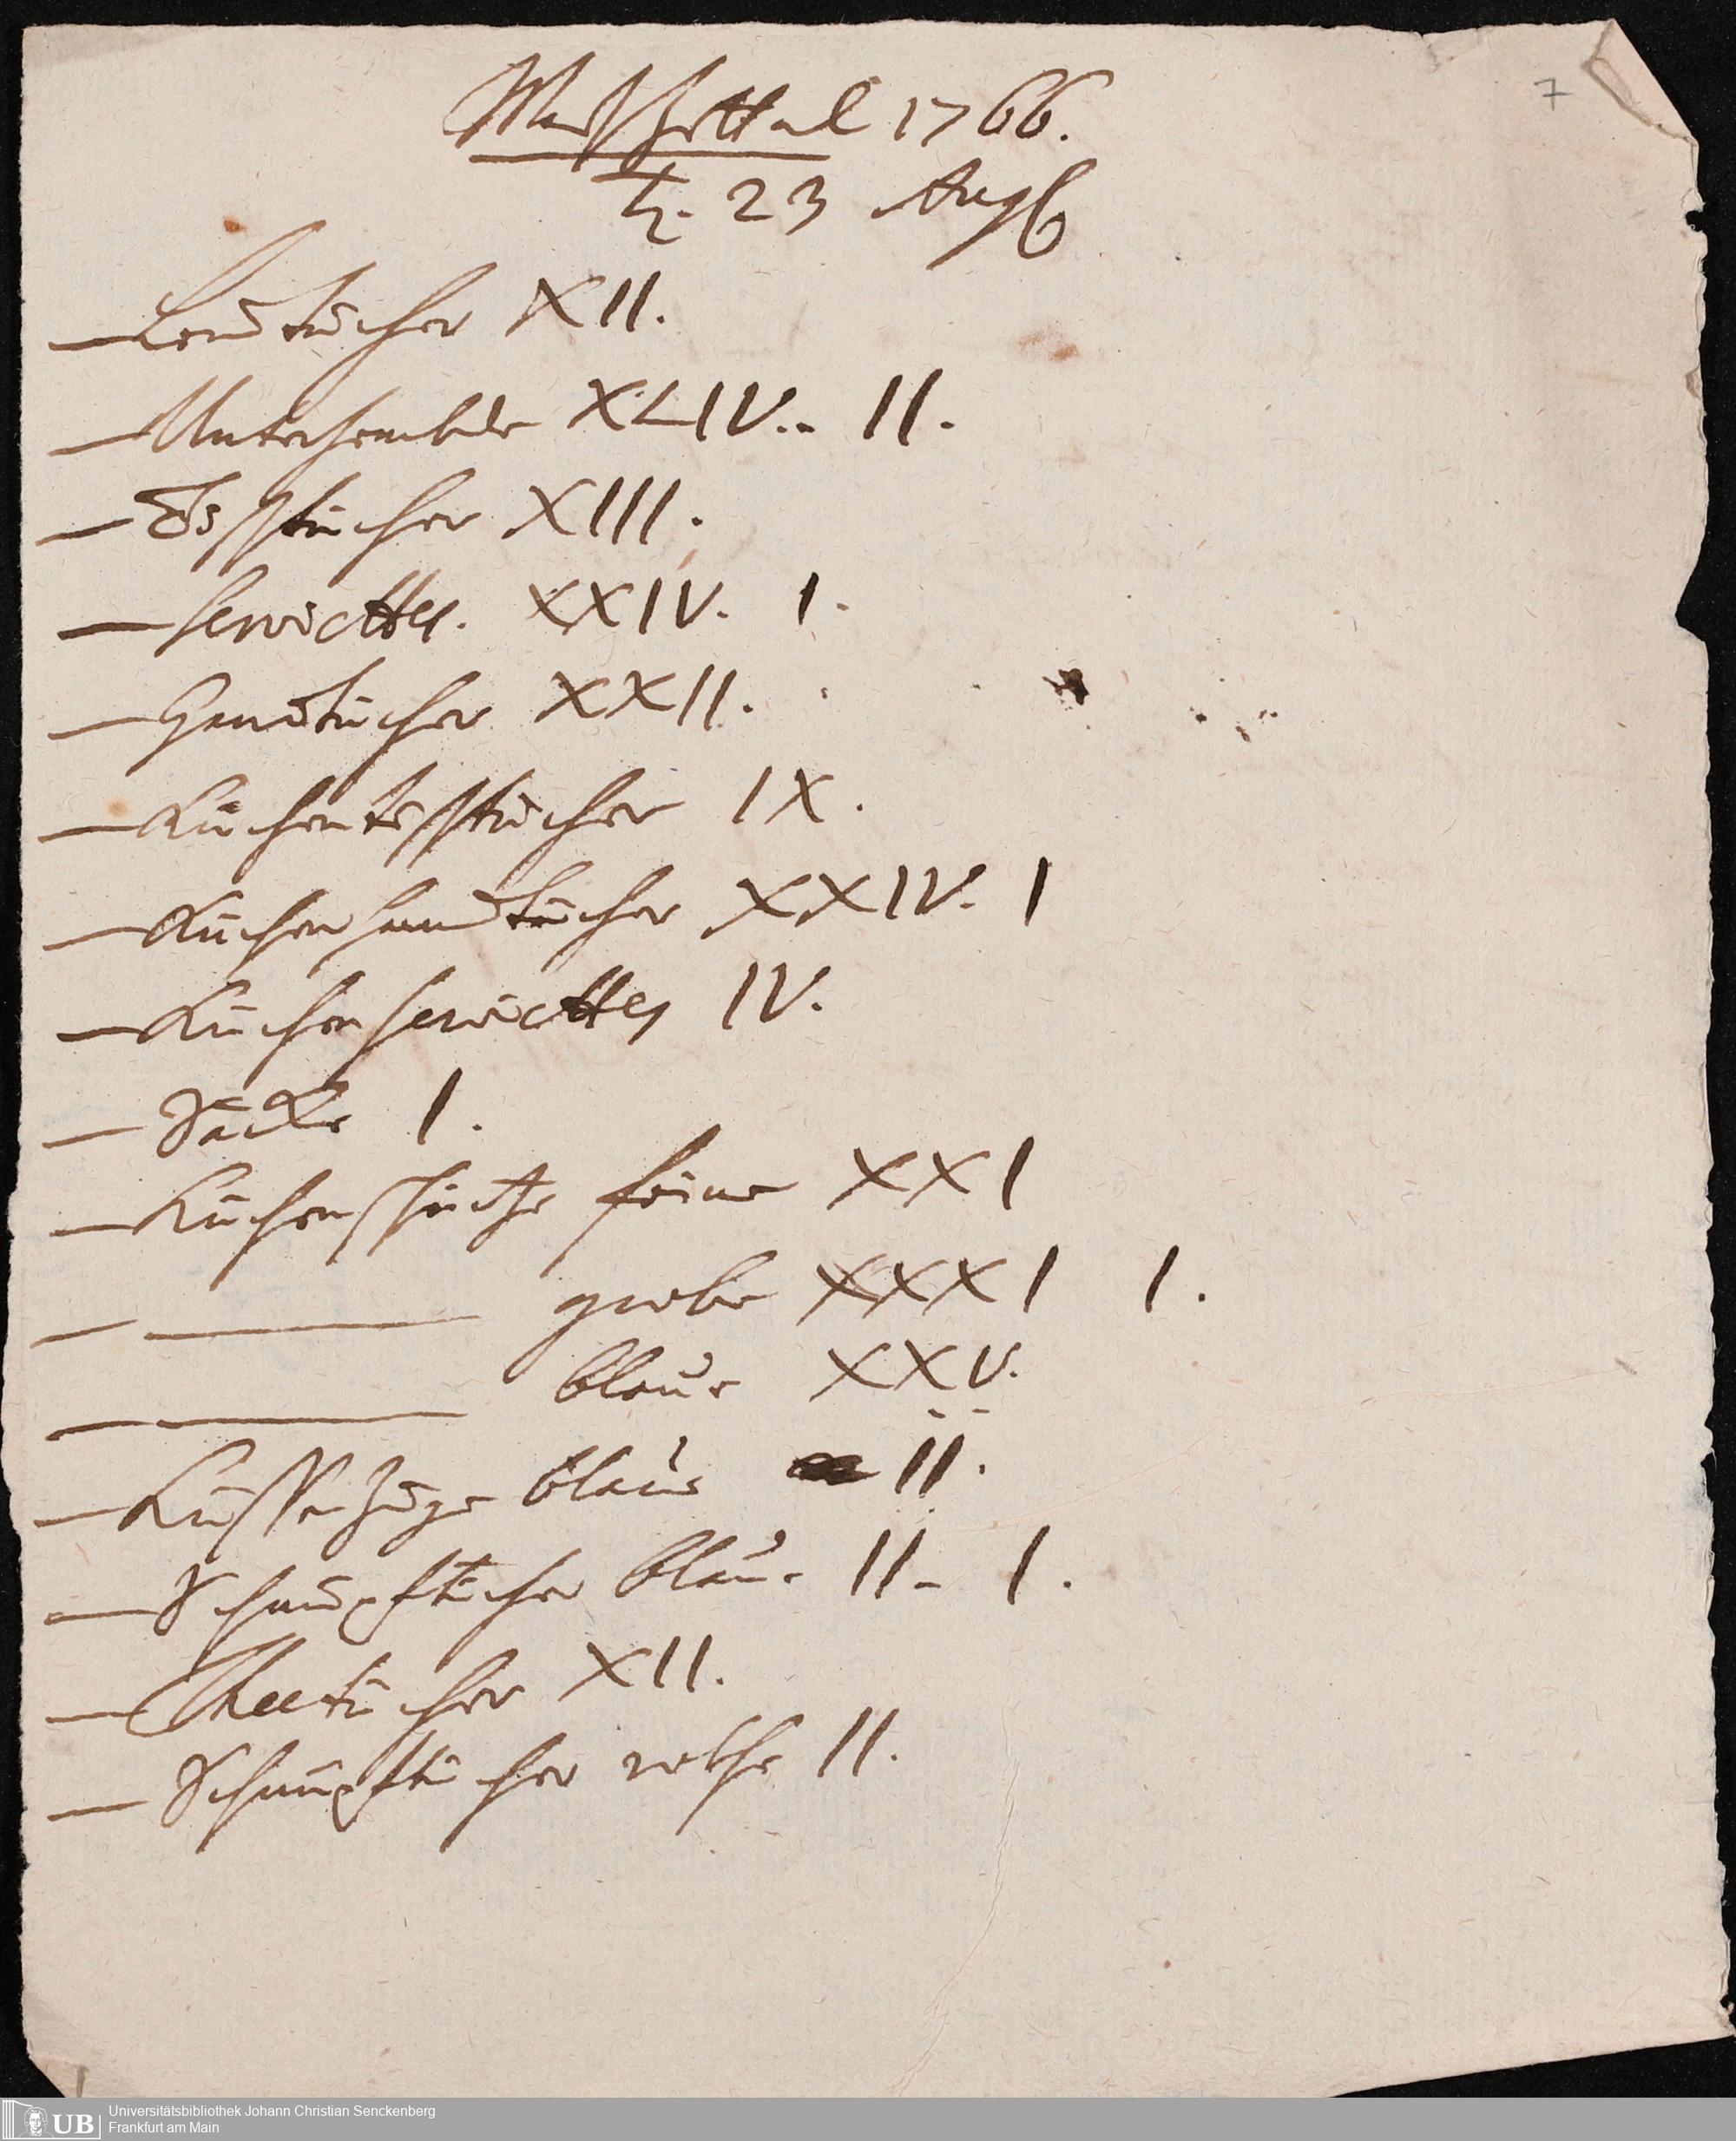 Waschzettul 1766.
d. 23 Aug
7
— Leintücher XII.
— Unterhembder XLIV.. II.
— Tischtücher XIII.
— servietten. XXIV. I.
— Handtücher XXII.
— Küchentischtücher IX.
— Küchenhandtücher XXIV. I
— Küchenservietten IV.
— Säcke I.
— Küchenschürtze feine XXI
— —— grobe XXXI I.
— —— blaue XXV.
— Küssenzüge blaue II.
— Schnupftücher blaue II- I.
— Theetücher XII.
— Schnupftücher rothe II.
UB
Universitätsbibliothek Johann Christian Senckenberg
Frankfurt am Main